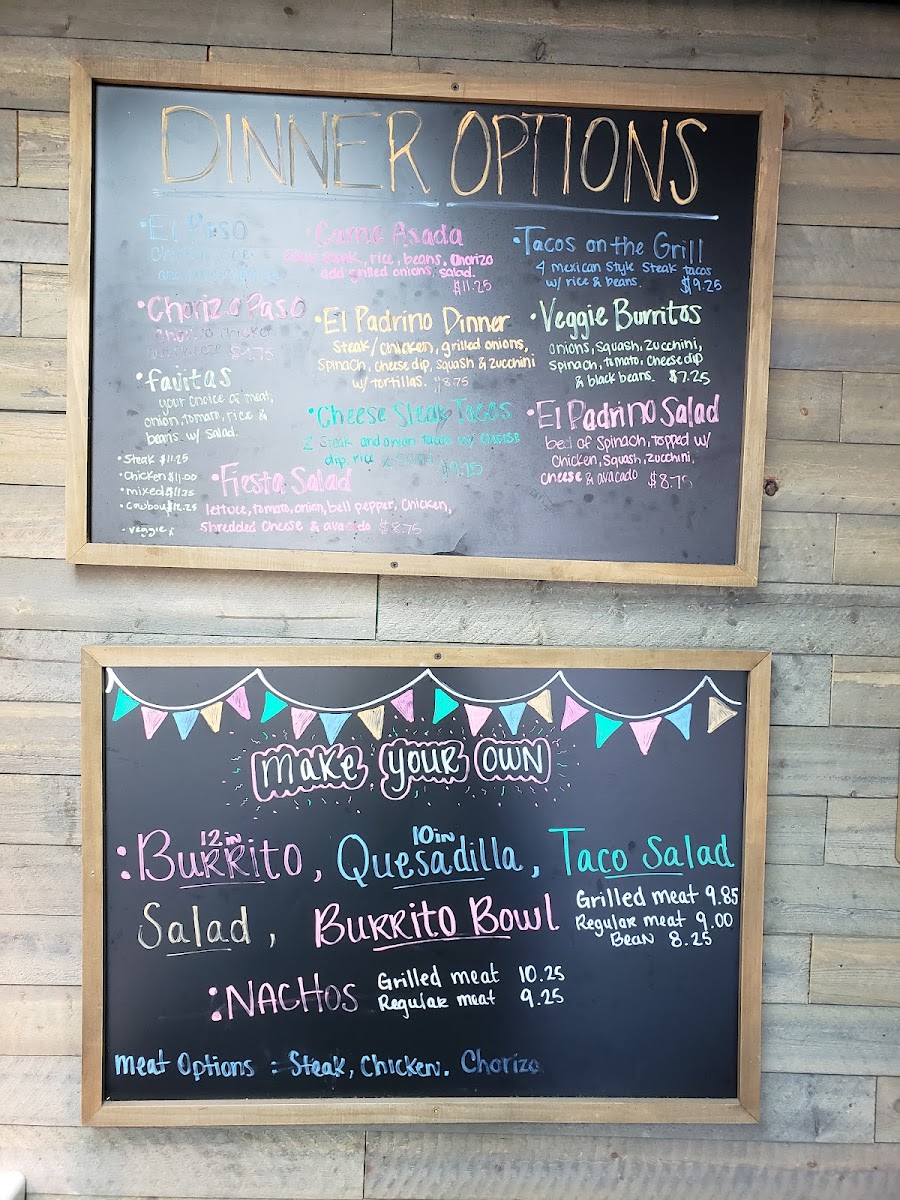 DINNER OPTIONS
• El Paso
• Carne Asada
steak, rice, beans, chorizo
add grilled onions, salad.
$11.25
• Tacos on the Grill
4 mexican style steak tacos
w/ rice & beans. $9.25
• Chorizo Paso
chorizo chicken
$9.75
• El Padrino Dinner
Steak/chicken, grilled onions,
spinach, cheese dip, squash & zucchini
w/ tortillas. $8.75
• Veggie Burritos
onions, squash, zucchini,
spinach, tomato, cheese dip
& black beans. $7.25
• fajitas
your choice of meat,
onion, tomato, rice &
beans w/ salad.
• Steak $11.25
• Chicken $11.00
• mixed $11.75
• cowboy $12.25
• veggie
• Cheese Steak Tacos
2 Steak and onion tacos w/ cheese
dip, rice $9.75
• El Padrino Salad
bed of spinach, topped w/
chicken, squash, zucchini,
cheese & avacado $8.75
• Fiesta Salad
lettuce, tomato, onion, bell pepper, chicken,
shredded cheese & avacado $8.75
make your own
: 12in Burrito, 10in Quesadilla, Taco Salad
Salad, Burrito Bowl
Grilled meat 9.85
Regular meat 9.00
Bean 8.25
: NACHOS
Grilled meat 10.25
Regular meat 9.25
meat Options : Steak, Chicken. Chorizo